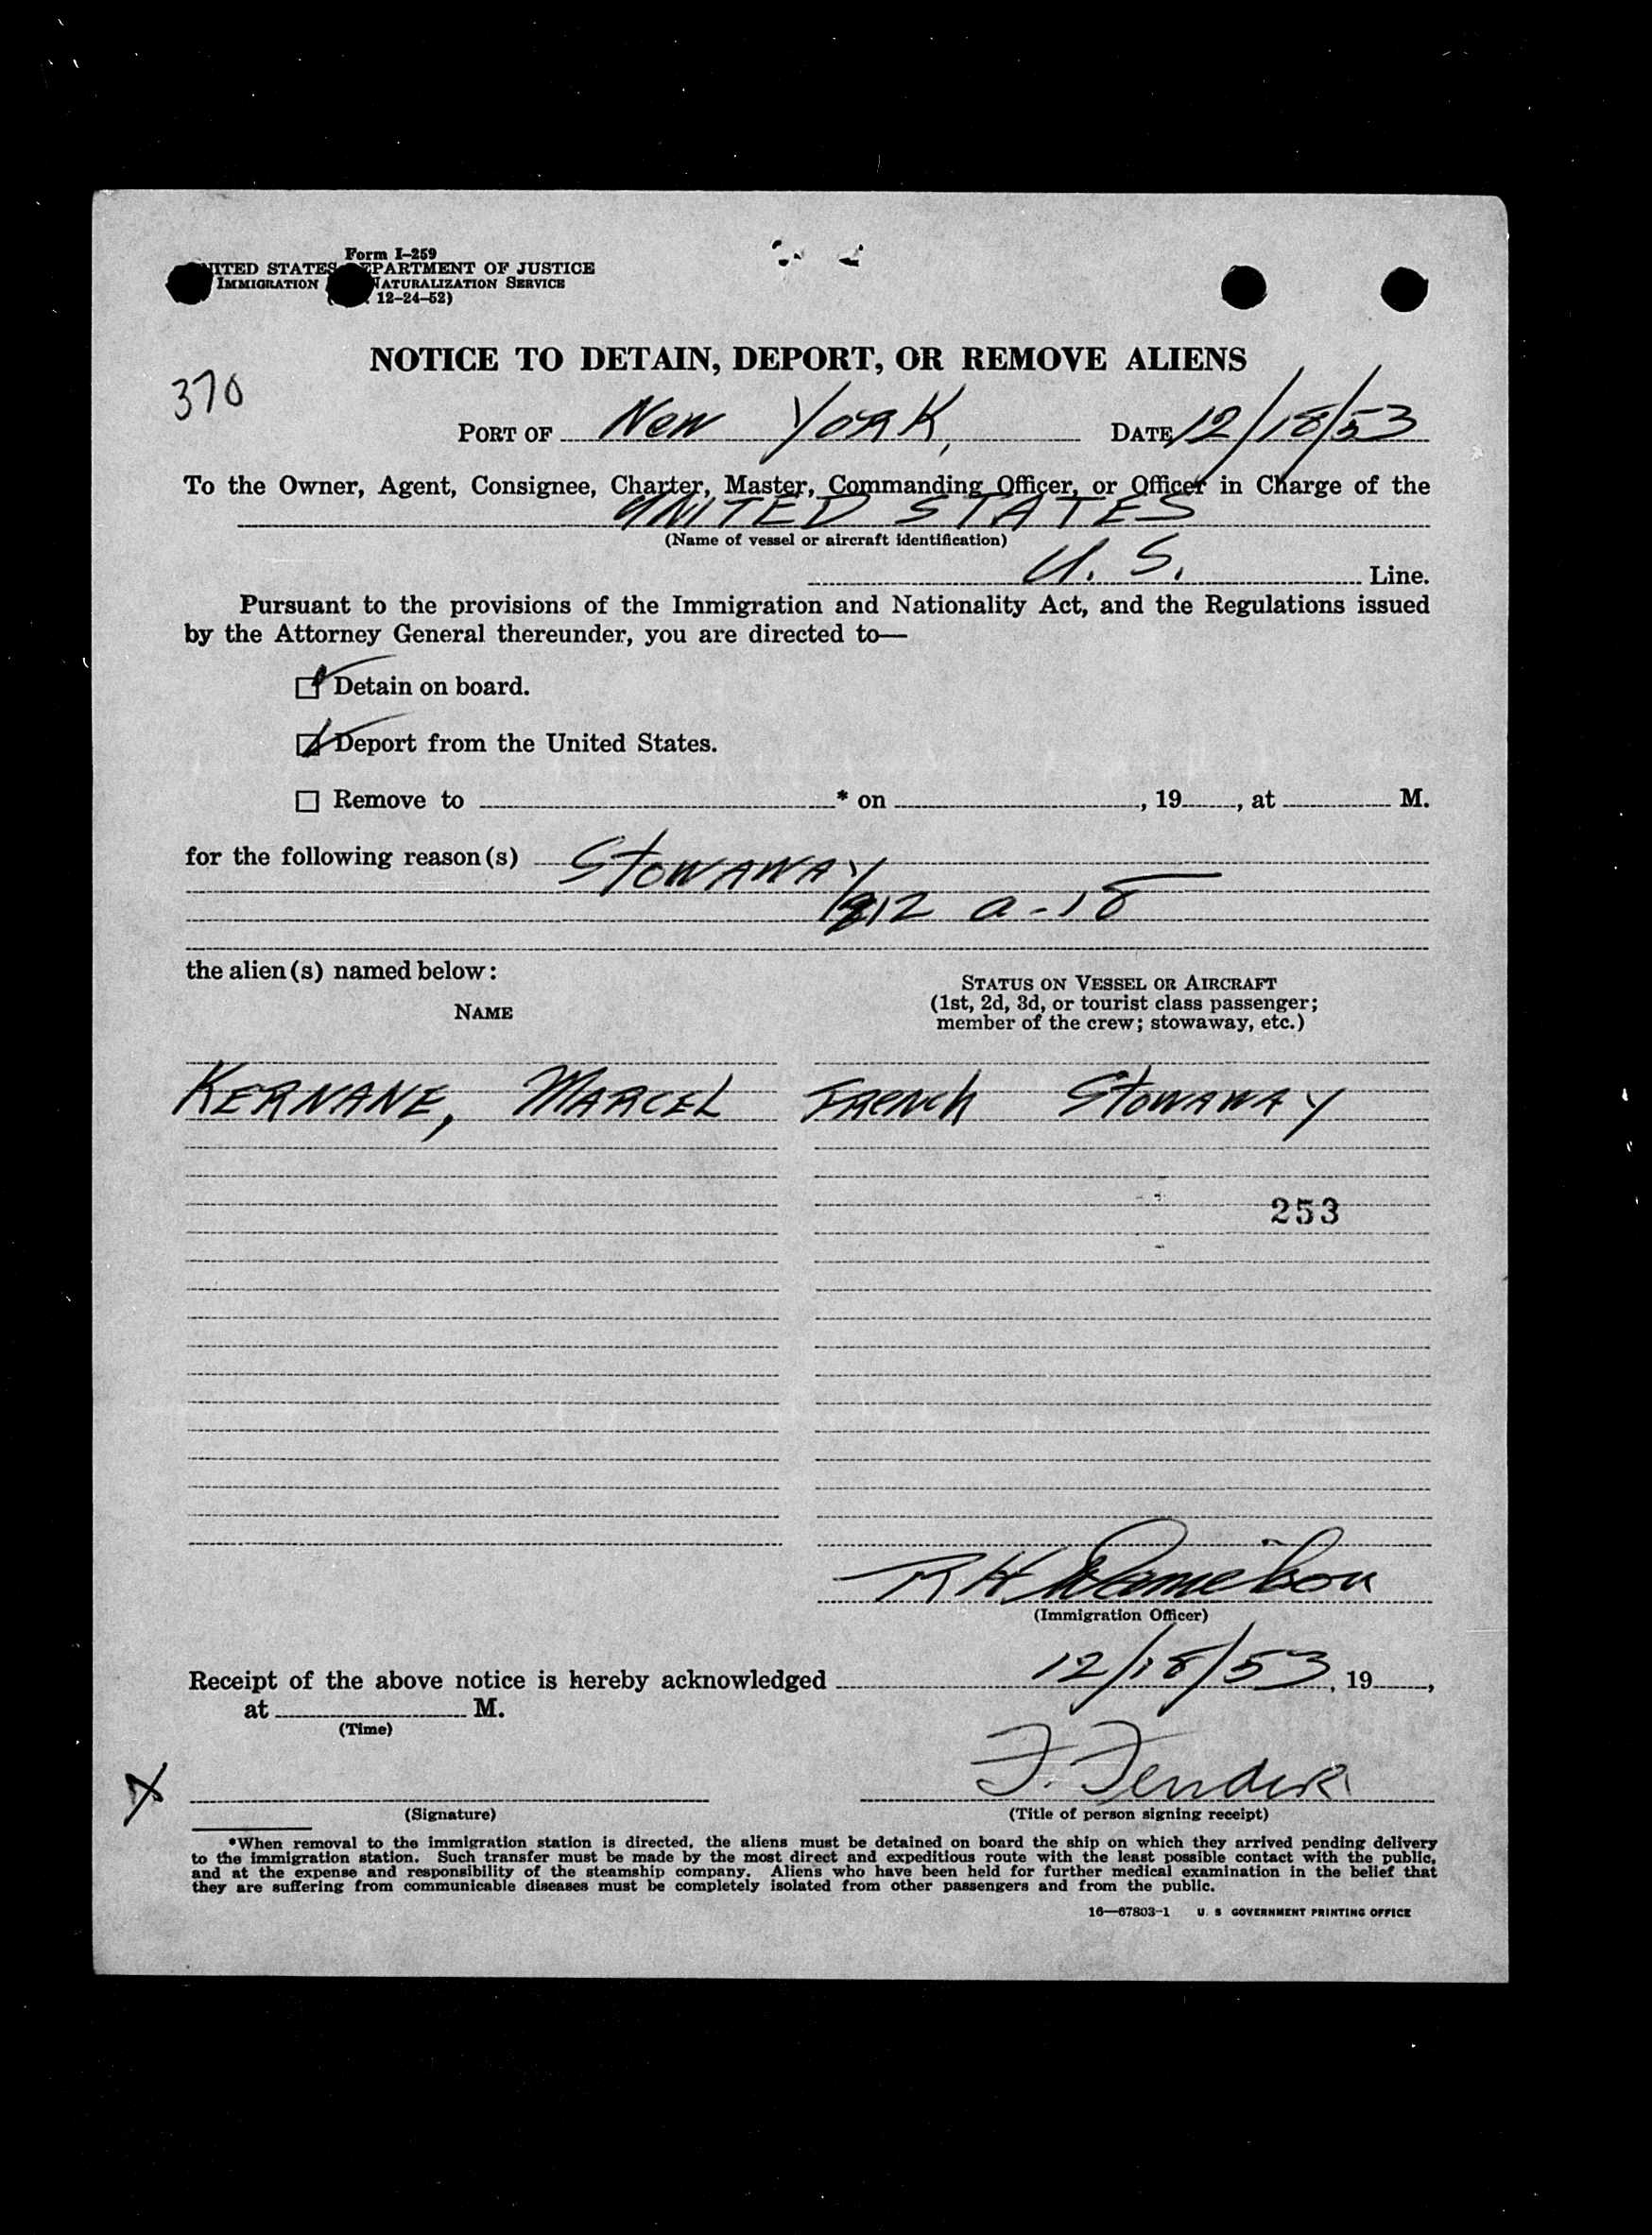 Form I-259
UNITED STATES DEPARTMENT OF JUSTICE
IMMIGRATION NATURALIZATION SERVICE
12-24-52)
NOTICE TO DETAIN, DEPORT, OR REMOVE ALIENS
370
PORT OF New York, DATE 12/18/53
To the Owner, Agent, Consignee, Charter, Master, Commanding Officer, or Officer in Charge of the
UNITED STATES
(Name of vessel or aircraft identification)
U. S. Line.
Pursuant to the provisions of the Immigration and Nationality Act, and the Regulations issued
by the Attorney General thereunder, you are directed to—
Detain on board.
Deport from the United States.
Remove to * on , 19 , at M.
for the following reason(s) Stowaway
212 a-18
the alien(s) named below:
STATUS ON VESSEL OR AIRCRAFT
(1st, 2d, 3d, or tourist class passenger;
member of the crew; stowaway, etc.)
NAME
KERNANE, MARCEL French Stowaway
253
(Immigration Officer)
Receipt of the above notice is hereby acknowledged 12/18/53, 19 ,
at M.
(Time)
X
(Signature)
(Title of person signing receipt)
*When removal to the immigration station is directed, the aliens must be detained on board the ship on which they arrived pending delivery
to the immigration station. Such transfer must be made by the most direct and expeditious route with the least possible contact with the public,
and at the expense and responsibility of the steamship company. Aliens who have been held for further medical examination in the belief that
they are suffering from communicable diseases must be completely isolated from other passengers and from the public.
16—67803-1 U. S GOVERNMENT PRINTING OFFICE